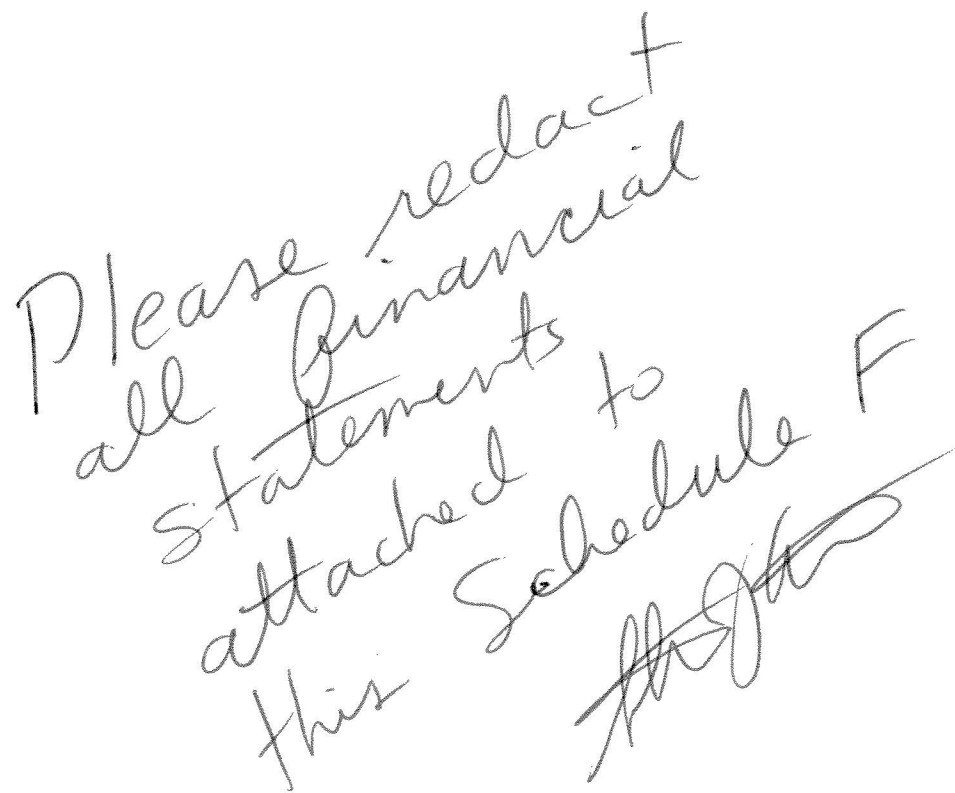 Please redact
all financial
statements
attached to
this Schedule F